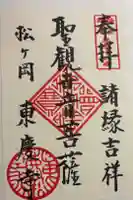 奉拝
諸縁吉祥
聖観音菩薩
松ヶ岡 東慶寺